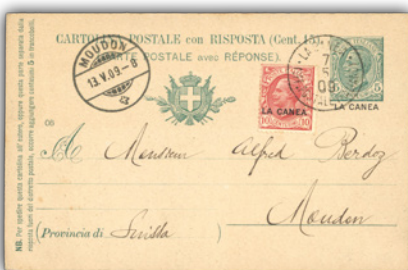 CARTOLINA POSTALE con RISPOSTA (Cent. 15)
(CARTE POSTALE avec RÉPONSE).
MOUDON
13 V.09-8
LA CANEA
7
5
09
5
LA CANEA
10 10
LA CANEA
08
A Monsieur Alfred Berdoz
Moudon
(Provincia di Suissa
NB. Per spedire questa cartolina all'estero, oppure questa parte separata dalla
risposta fuori del distretto postale, occorre aggiungere centesimi 5 in francobolli.